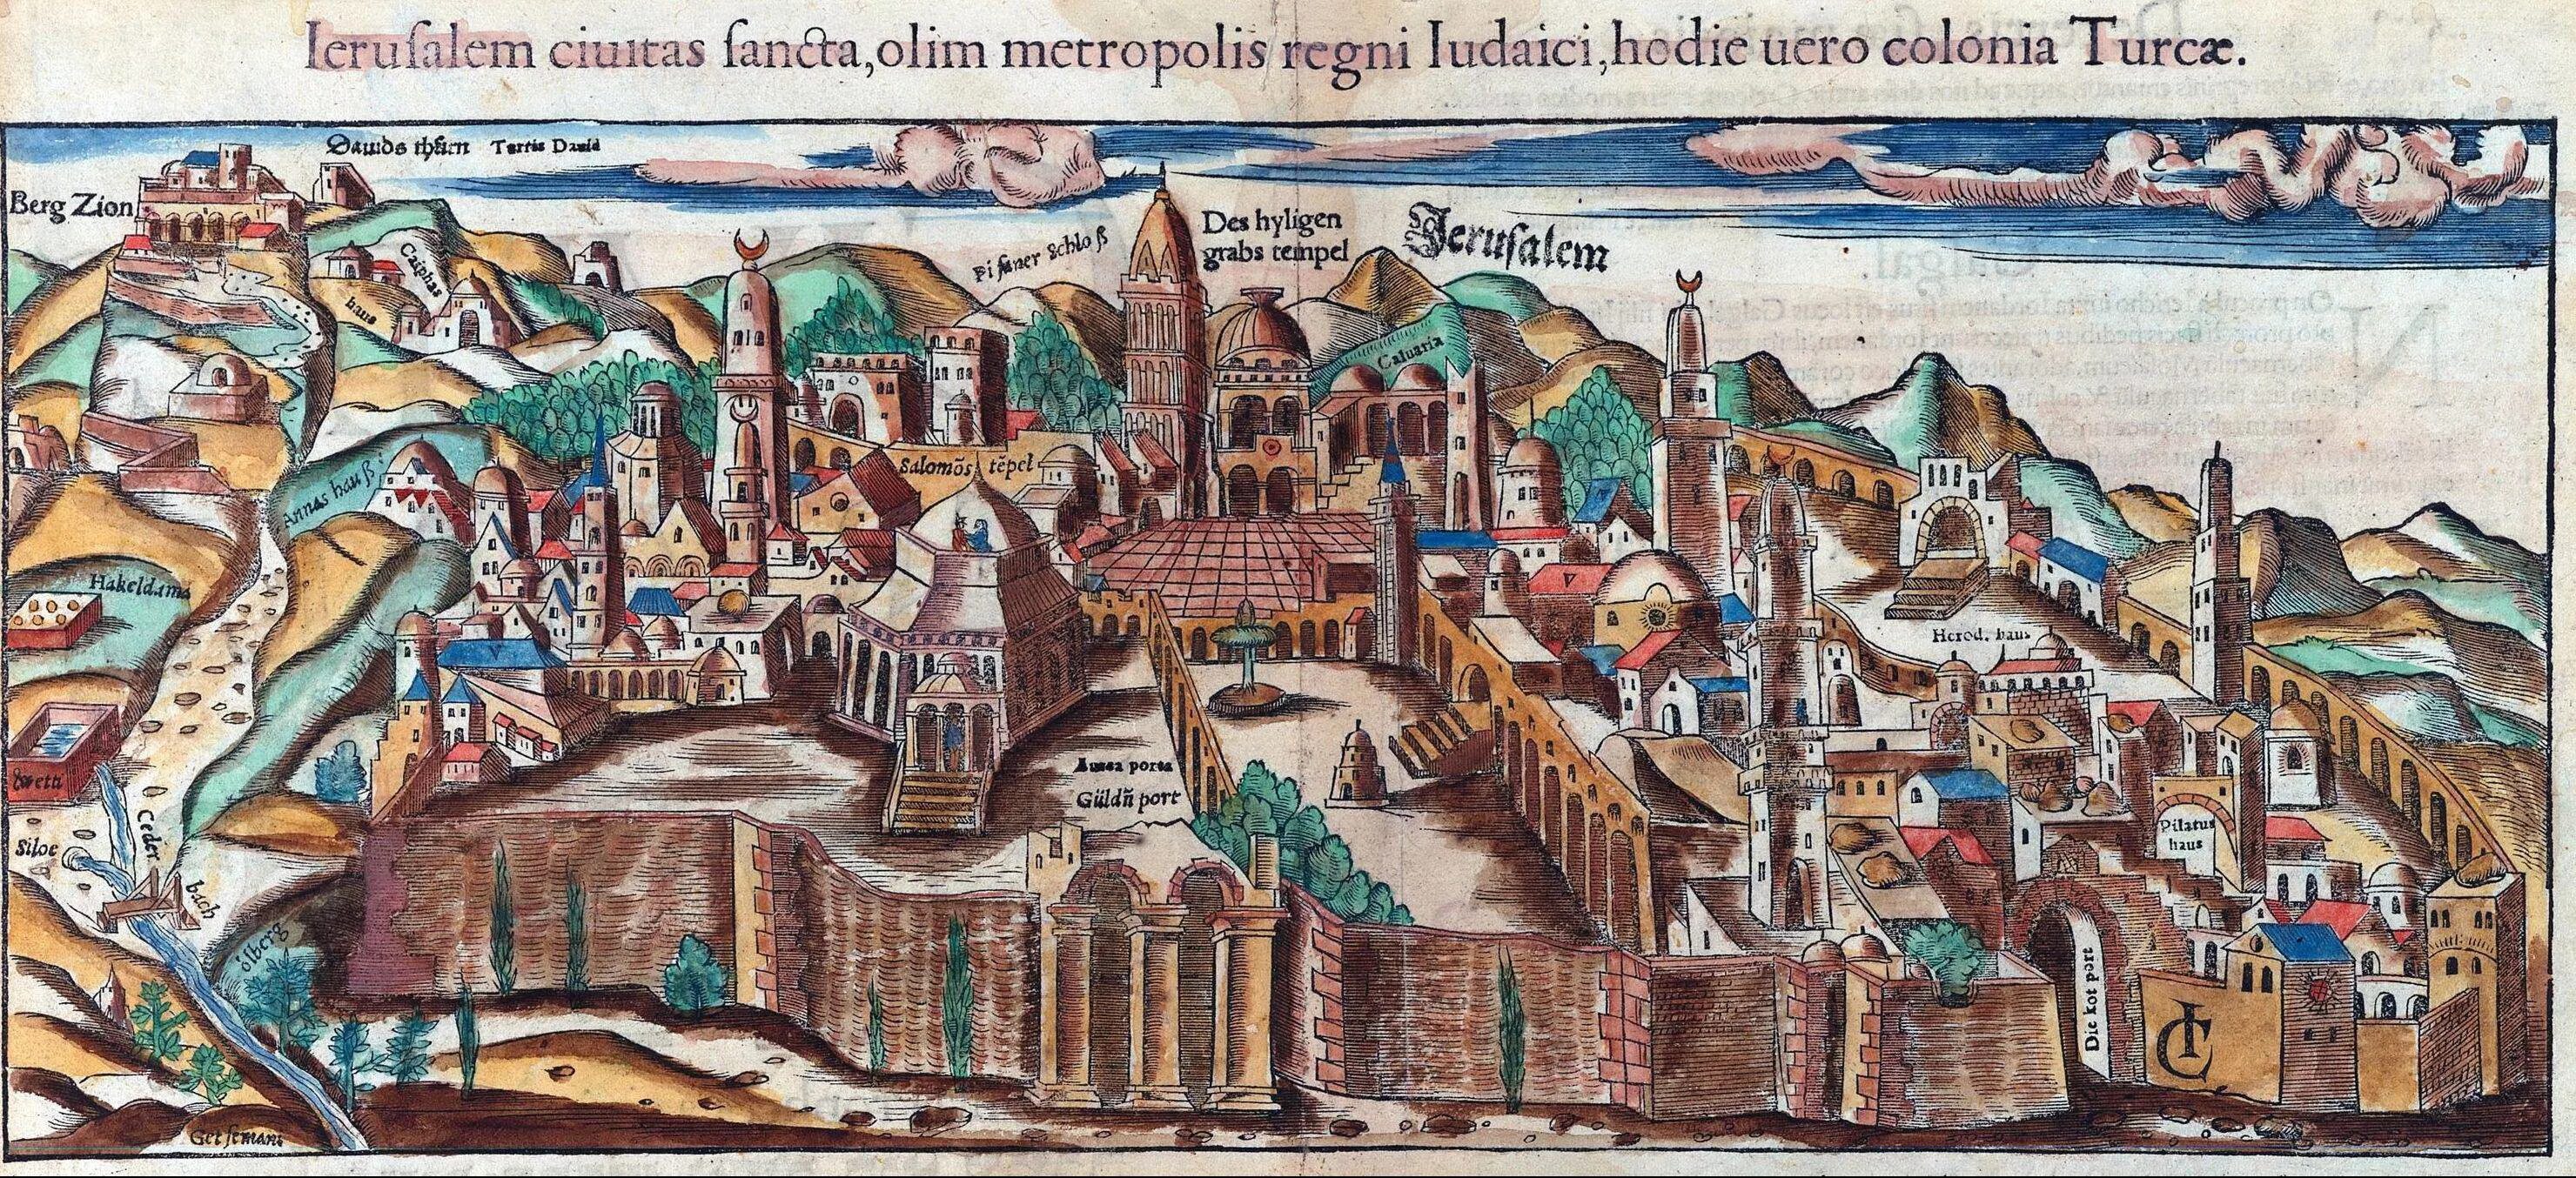 Ieruſalem ciuitas ſancta, olim metropolis regni Iudaici, hodie uero colonia Turcæ.
Dauids thůrn Turris Dauid
Berg Zion
Des hyligen
grabs tempel
Jeruſalem
Piſaner Schloß
Caiphas
haus
Caluaria
Salomōs tēpel
Annas hauß
Hakeldama
Herod. haus
Aurea porta
Güldñ port
Pilatus
haus
Siloe
Ceder
bach
ölberg
Die kot port
Getſemani